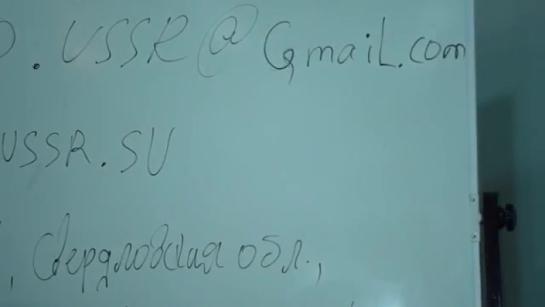 .USSR@Gmail.com
USSR.SU
, Свердловская обл.,